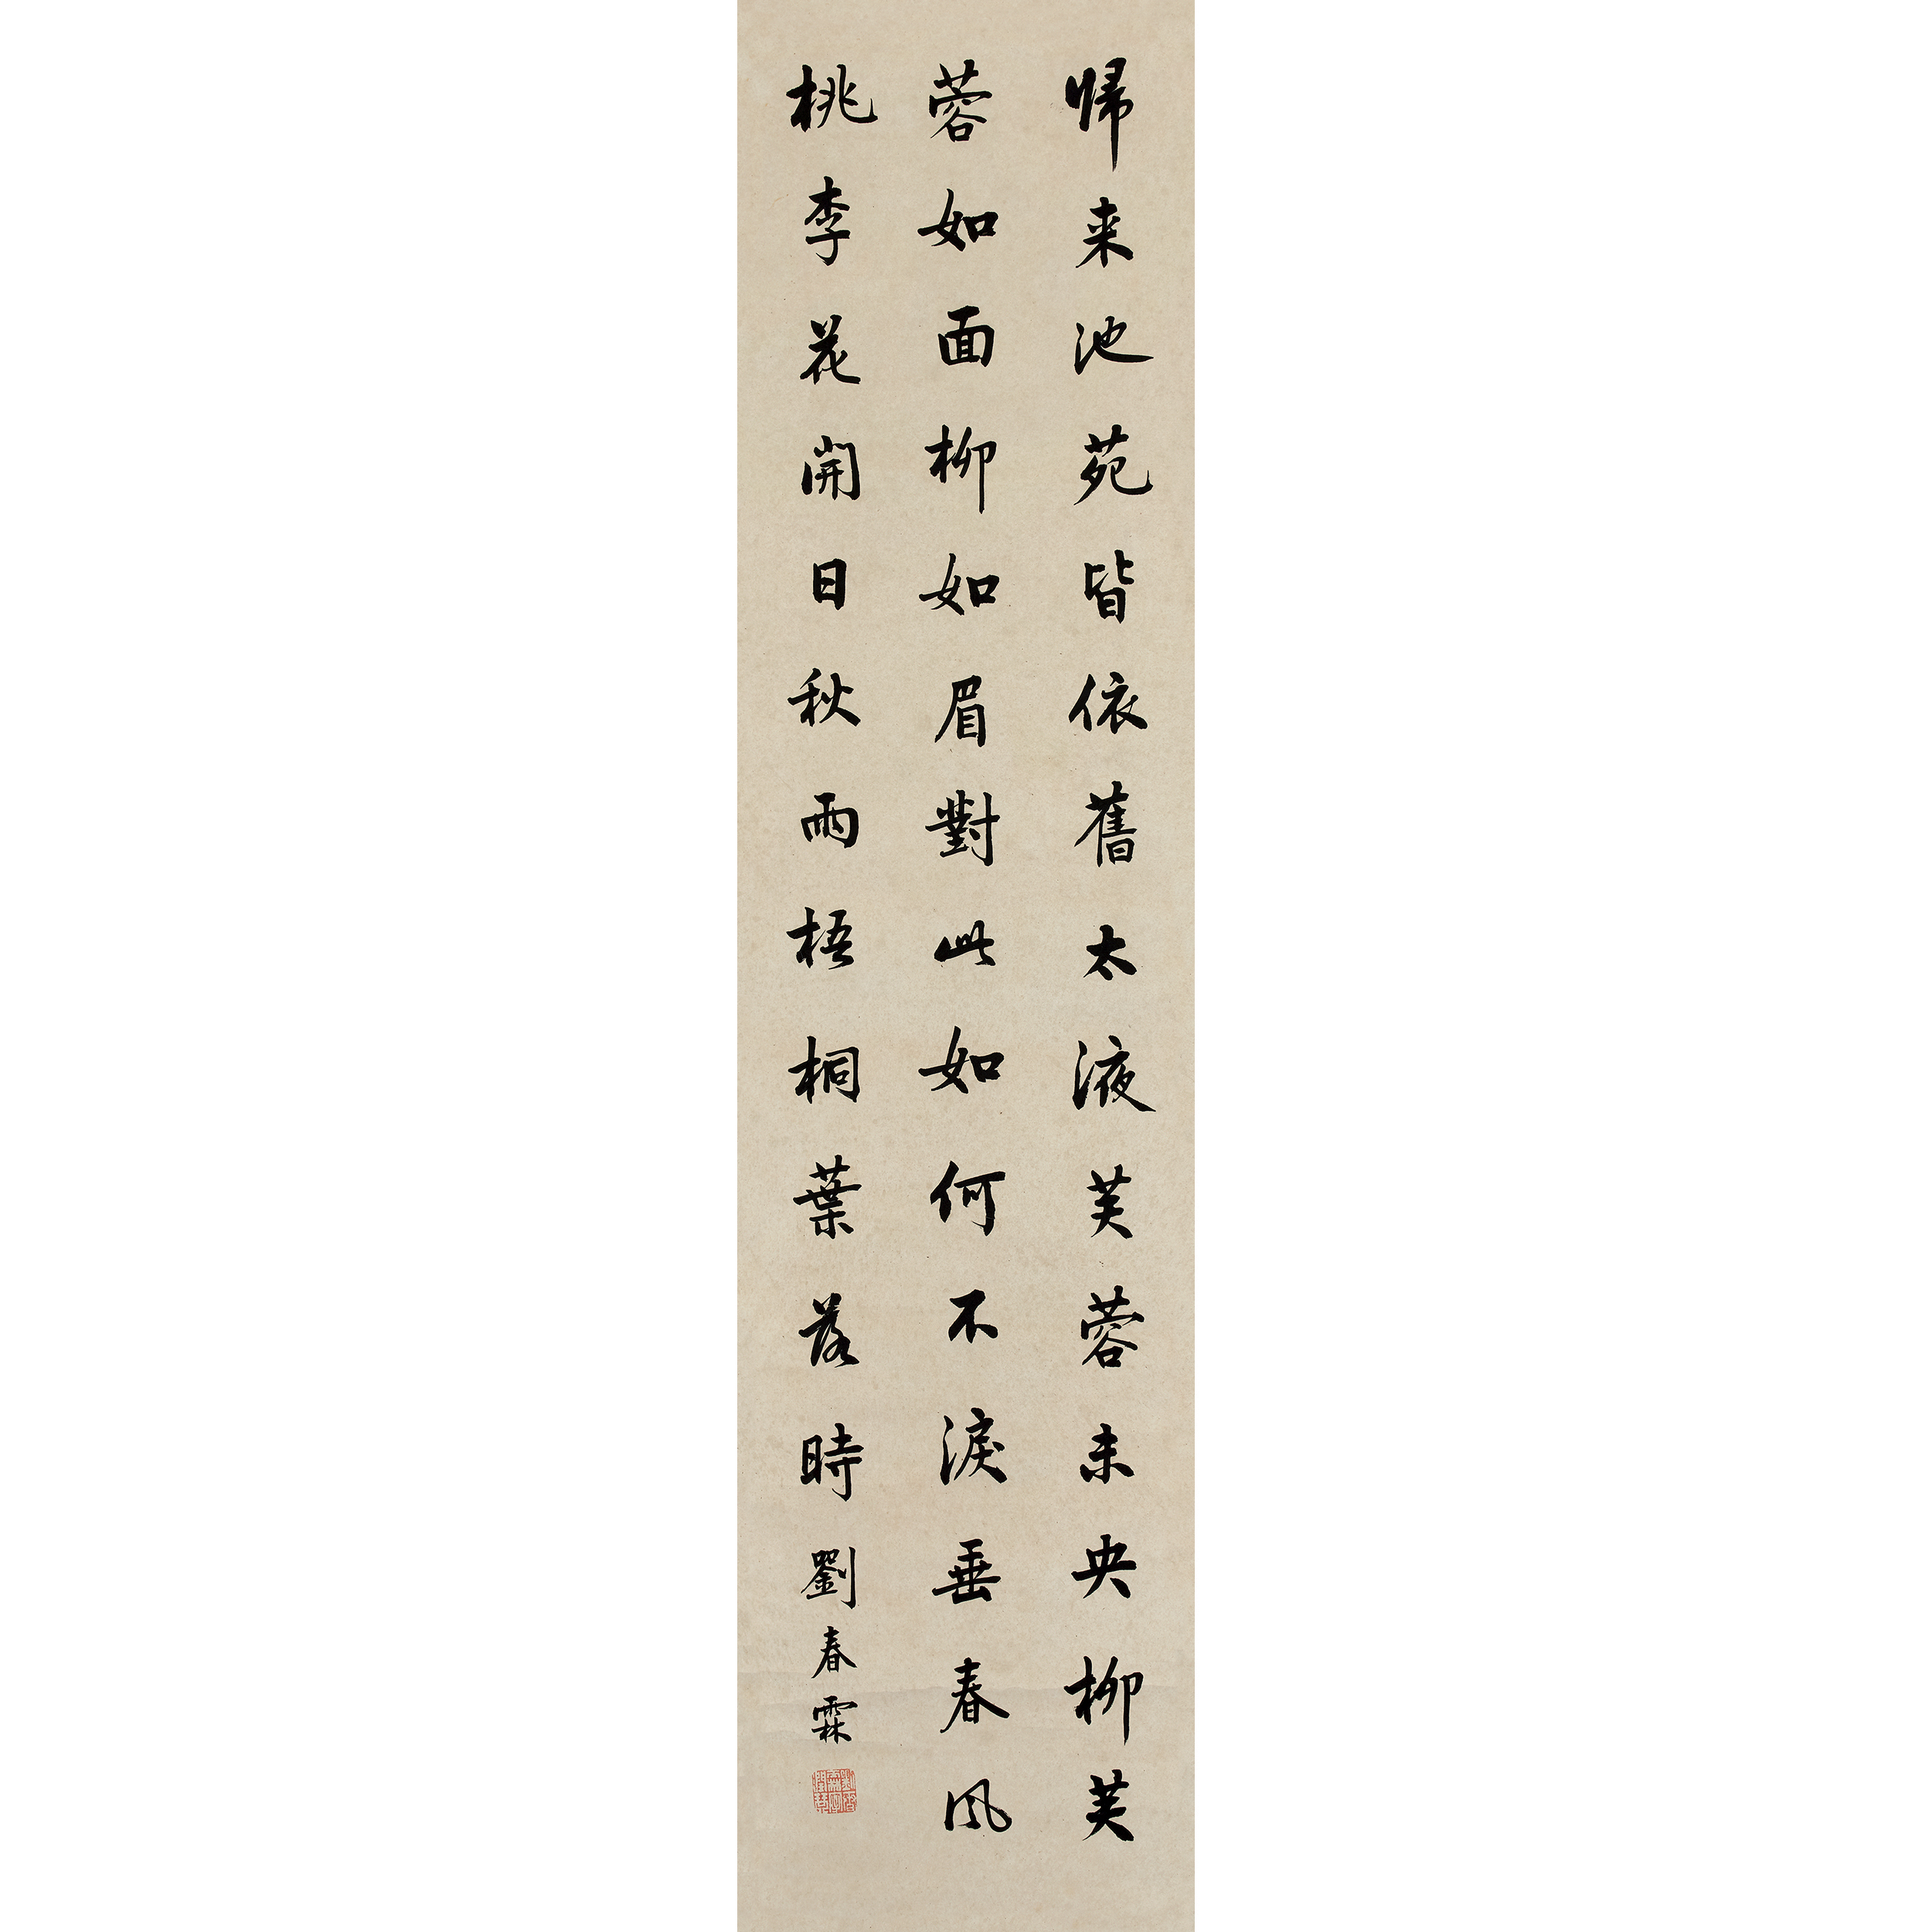 歸来池苑皆依舊太液芙蓉未央柳芙
蓉如面柳如眉對此如何不淚垂春風
桃李花開日秋雨梧桐葉落時劉春霖